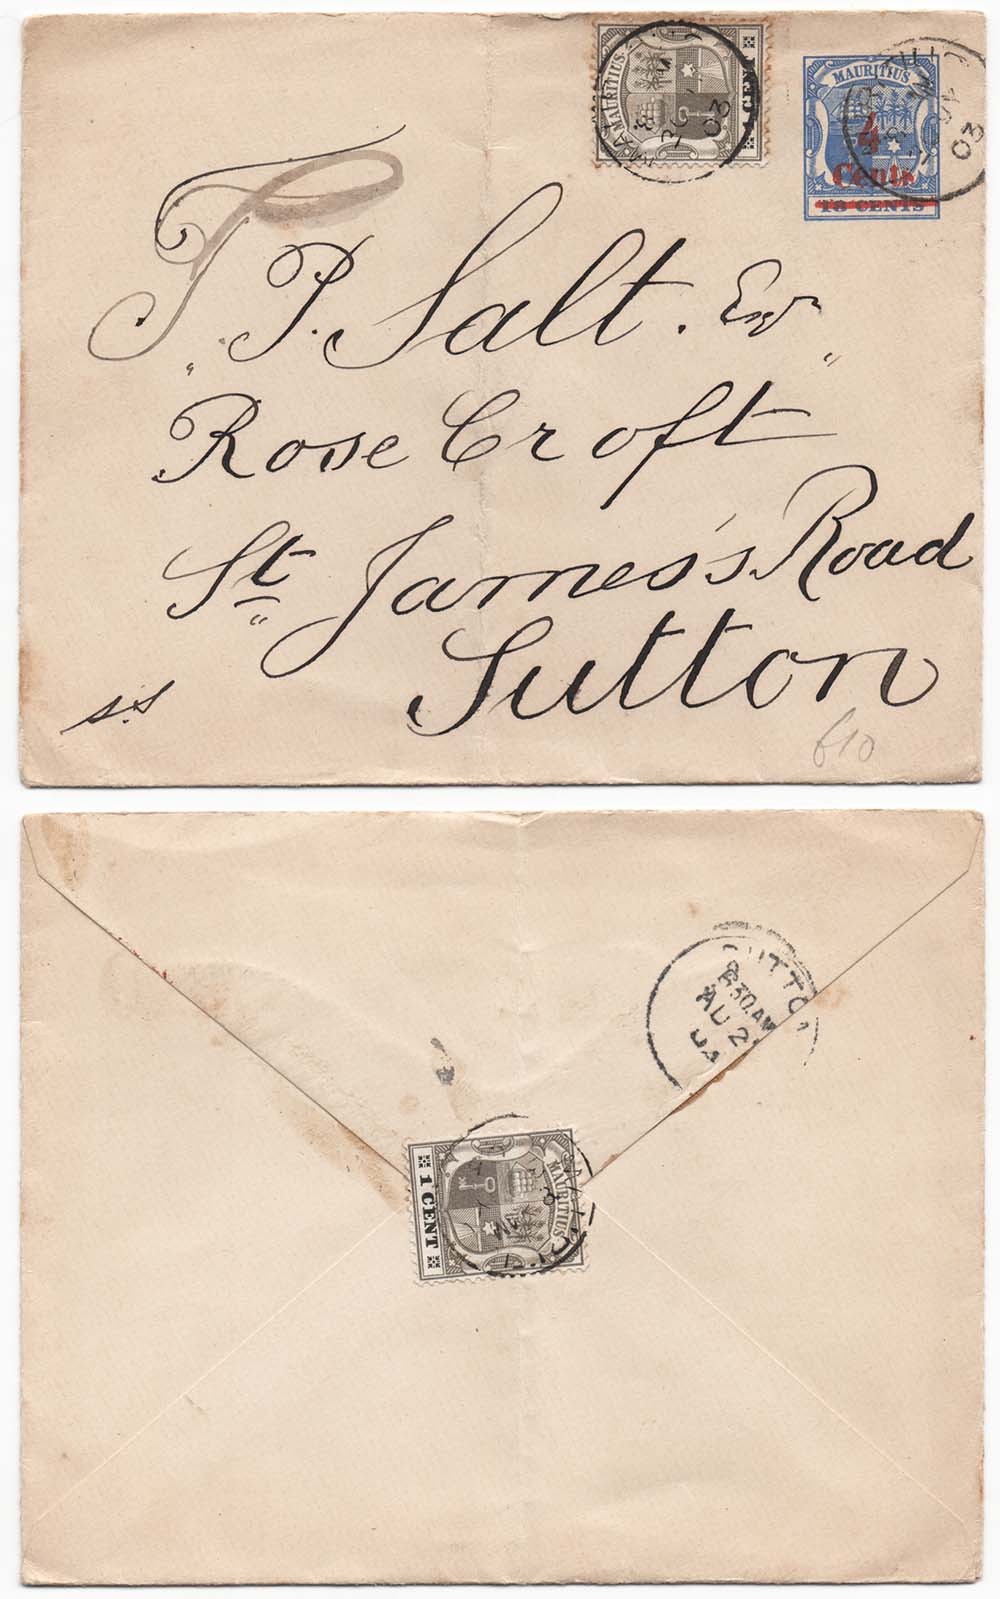 MAURITIUS
1 CENT
03
MAURITIUS
4
Cents
18 CENTS
03
T. P. Salt. Esqr
Rose Croft
St James's Road
Sutton
s.s
£10
SUTTON
8.30AM
AU 2
03
MAURITIUS
1 CENT